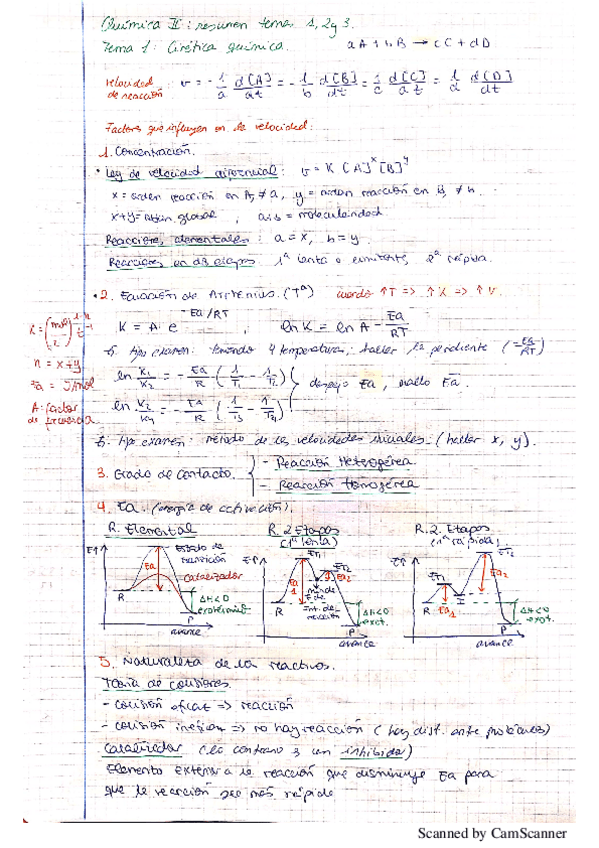 Química II: resumen temas 1, 2 y 3.
Tema 1: Cinética química. aA + bB → cC + dD
velocidad de reacción: v = - 1/a d[A]/dt = - 1/b d[B]/dt = 1/c d[C]/dt = 1/d d[D]/dt
Factores que influyen en la velocidad:
1. Concentración.
• Ley de velocidad diferencial: v = K [A]^x [B]^y
x = orden reacción en A, ≠ a, y = orden reacción en B, ≠ b.
x+y = orden global, a+b = molecularidad
Reacciones elementales: a = x, b = y.
Reacciones en dos etapas: 1ª lenta o limitante, 2ª rápida.
• 2. Ecuación de Arrhenius. (Tª) cuando ↑T ⇒ ↑K ⇒ ↑v.
K = A · e^(-Ea/RT), ln K = ln A - Ea/RT
tipo examen: teniendo 4 temperaturas, hallar la pendiente (-Ea/RT)
ln K1/K2 = - Ea/R · (1/T1 - 1/T2)
ln K3/K4 = - Ea/R (1/T3 - 1/T4)
despejo Ea, hallo Ea.
n = x+y
Ea = J/mol
A: factor de frecuencia
tipo examen: método de las velocidades iniciales. (hallar x, y).
3. Grado de contacto.
- Reacción Heterogénea.
- Reacción Homogénea.
4. Ea. (energía de activación).
R. Elemental R. 2 Etapas (1ª lenta) R. 2. Etapas (1ª rápida)
E↑ Estado de transición Catalizador Ea R ΔH<0 exotérmico P avance
E↑ ET1 Ea1 Ea2 R ΔH<0 exot. P avance
E↑ ET1 ET2 Ea1 Ea2 R I ΔH<0 exot. P avance
5. Naturaleza de los reactivos.
Teoría de colisiones.
- colisión eficaz ⇒ reacción
- colisión ineficaz ⇒ no hay reacción (hay dist. ante problemas)
Catalizador (lo contrario es un inhibidor)
Elemento externo a la reacción que disminuye Ea para
que la reacción sea más rápida
Scanned by CamScanner